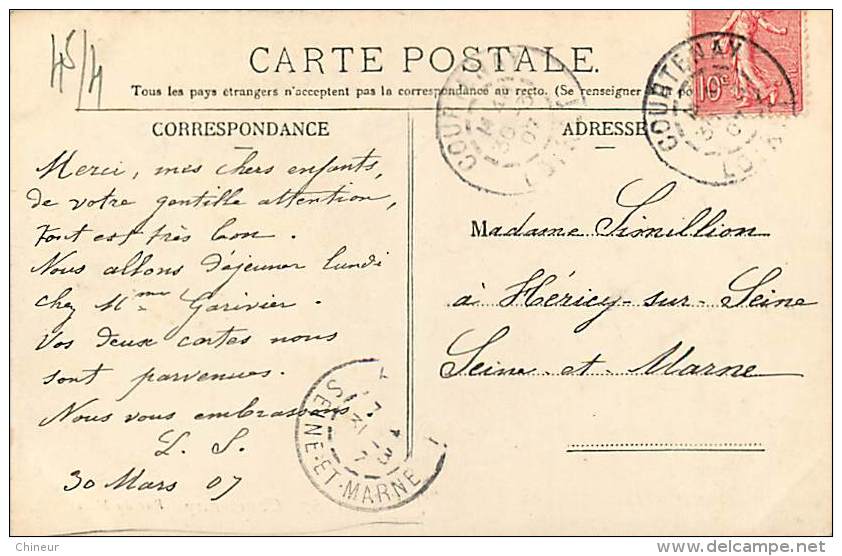 45/4
CARTE POSTALE.
Tous les pays étrangers n'acceptent pas la correspondance au recto. (Se renseigner
CORRESPONDANCE
ADRESSE
COURTENAY
30 -3
07
LOIRET
COURTENAY
10c
07
LOIRET
Merci, mes chers enfants,
de votre gentille attention,
tout est très bon.
Nous allons déjeuner lundi
chez Mme Garivier.
Vos deux cartes nous
sont parvenues.
Nous vous embrassons
L. S.
30 Mars 07
Madame Simillion
à Héricy-sur-Seine
Seine-et-Marne
SEINE-ET-MARNE
31 -3
Chineur
www.delcampe.net